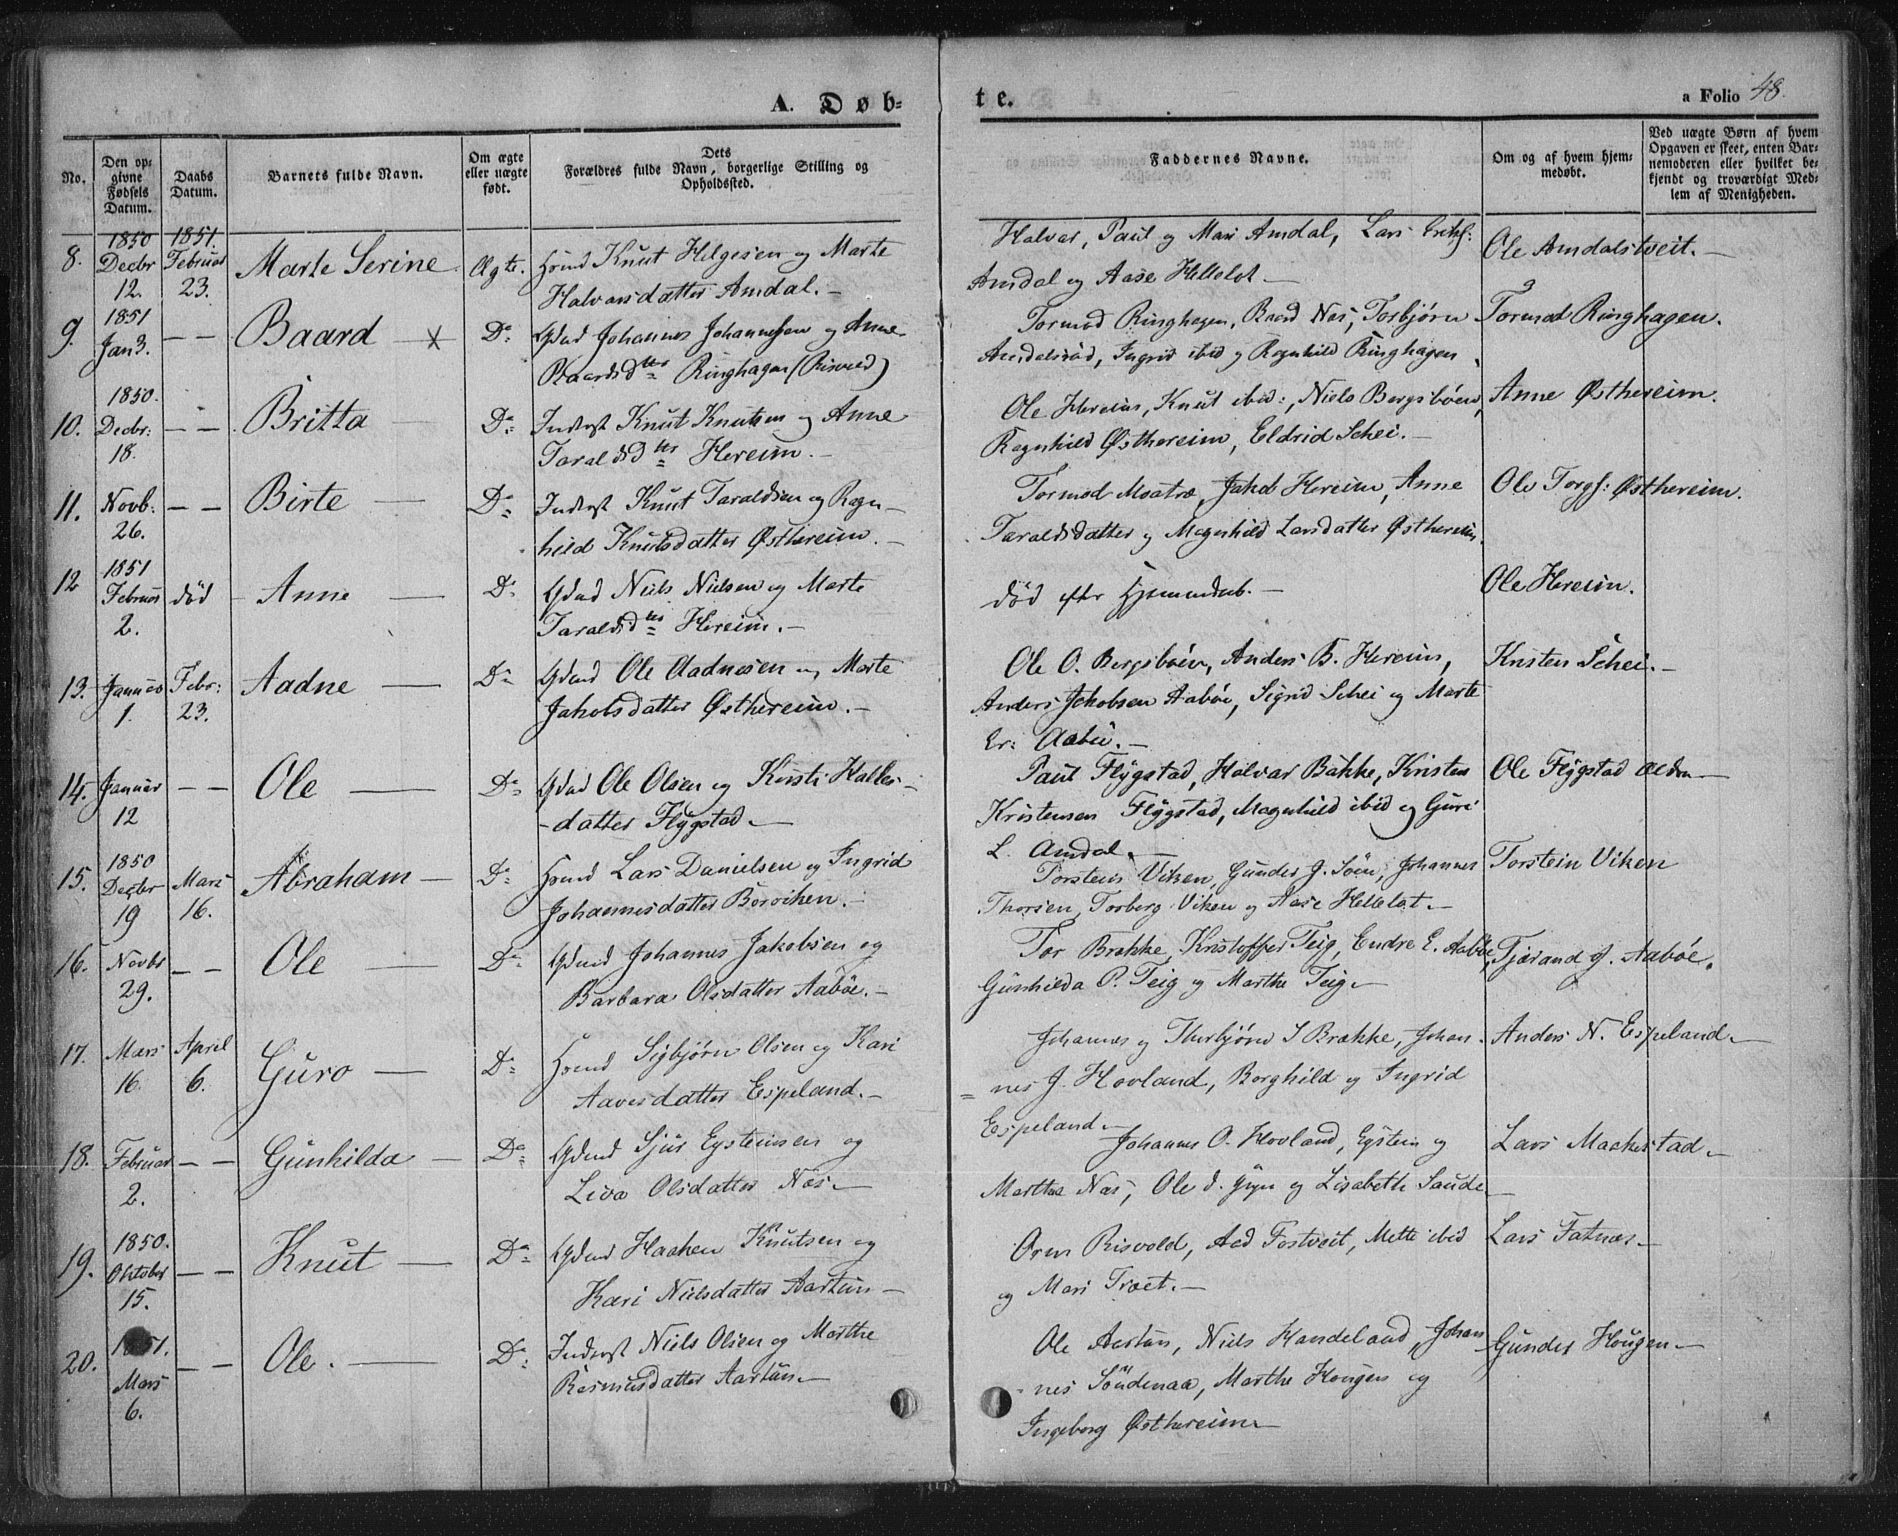 A. Døb-
te.
a Folio 48.
No.
Den op-
givne
Fødsels
Datum.
Daabs
Datum.
Barnets fulde Navn.
Om ægte
eller uægte
født.
Dets
Forældres fulde Navn, borgerlige Stilling og
Opholdssted.
Faddernes Navne.
Om og af hvem hjem-
medøbt.
Ved uægte Børn af hvem
Opgaven er skeet, enten Bar-
nemoderen eller hvilket be-
kjendt og troværdigt Med-
lem af Menigheden.
8.
1850
Decbr
12.
1851.
Februar
23.
Marte Serine
Ægte.
Knut Helgesen og Marte
Halvarsdatter Amdal. -
Halvar, Paul og Mari Amdal, Lars
Amdal og Aase Hellelot -
Ole Amdalstveit. -
9.
1851
Jan 3.
- -
Baard
Do
Gdmd Johannes Johannessen og Anne
Baardsdter Ringhagen (Risvold)
Tormod Ringhagen, Baard Næs, Torbjørn
Ingrid ibid og Ragnhild Ringhagen
Tormod Ringhagen.
10.
1850.
Decbr:
18.
- -
Britta
Do
Inderst Knut Knutsen og Anne
Taraldsdter Hereim. -
Ole Hereim, Knut ibid:, Niels Bergsbøen,
Ragnhild Østhereim, Eldrid Schei. -
Anne Østhereim.
11.
Novb:
26.
- -
Birte
Do
Inderst Knut Taraldsen og Ragn-
hild Knutsdatter Østhereim. -
Tormod Moatræ, Jakob Hereim, Anne
Taraldsdatter og Magnhild Larsdatter Østhereim.
Ole Torgs: Østhereim.
12
1851
Februar
2.
død
Anne
Do
Gdmd Niels Nielsen og Marte
Taraldsdter Hereim. -
død efter Hjemmedaab. -
Ole Hereim.
13.
Januar
1.
Febr:
23.
Aadne
Do
Gdmd Ole Aadnesen og Marte
Jakobsdatter Østhereim. -
Ole O. Bergsbøen, Anders B. Hereim,
Anders Jakobsen Aabøe, Sigrid Schei og Marte
Er: Aabøe. -
Kristen Schei. -
14.
Januar
12
- -
Ole
Do
Gdmd Ole Olsen og Kirsti Halles-
-datter Flygstad -
Paul Flygstad, Halvar Bakke, Kristen
Kristensen Flygstad, Magnhild ibid og Guri
L. Amdal. -
Ole Flygstad
15.
1850
Decbr
19
Mars
16.
Abraham
Do
Lars Danielsen og Ingrid
Johannesdatter Borviken. -
Torstein Viken, Gunder J. Söen, Johannes
Thorsen, Torberg Viken og Aase Hellelot. -
Torstein Viken
16.
Novbr
29.
- -
Ole
Do
Gdmd Johannes Jakobsen og
Barbara Olsdatter Aabøe. -
Tor Brække, Kristoffer Teig, Endre E. Aabøe,
Gunhilda P. Teig og Marthe Teig -
Tjærand J. Aabøe.
17.
Mars
16.
April
6.
Guro
Do
Sigbjørn Olsen og Kari
Aavesdatter Espeland. -
Johannes og Thorbjørn S Brække, Johan-
nes J. Hovland, Borghild og Ingrid
Espeland -
Anders N. Espeland -
18.
Februar
2.
- -
Gunhilda
Do
Gdmd Sjur Eysteinsen og
Liva Olsdatter Næs -
Johannes O. Hovland, Eystein og
Martha Næs, Ole og Lisabeth Saude -
Lars Maakestad -
19.
1850.
Oktober
15.
- -
Knut
Do
Gdmd Haaken Knutsen og
Kari Nielsdatter Aartun -
Orm Risvold, Aad Fostveit, Mette ibid
og Mari Træet. -
Lars Fatnes -
20.
1851.
Mars
6.
- -
Ole.
Do
Inderst Niels Olsen og Marthe
Rasmusdatter Aartun -
Ole Aartun, Niels Handeland, Johan-
nes Söndenaa, Marthe Hougen og
Ingeborg Østhereim -
Gunder Hougen -